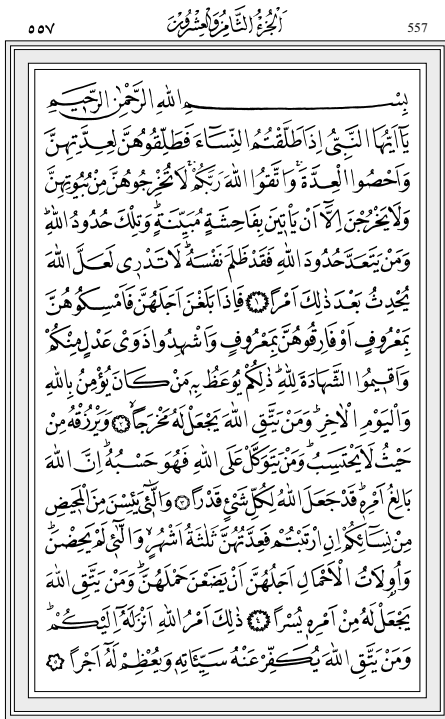 ٥٥٧ اَلْجُزْءُ الثَّامِنُ وَالْعِشْرُونَ 557
بِسْمِ اللهِ الرَّحْمٰنِ الرَّحِيمِ
يَٓا اَيُّهَا النَّبِيُّ اِذَا طَلَّقْتُمُ النِّسَٓاءَ فَطَلِّقُوهُنَّ لِعِدَّتِهِنَّ
وَاَحْصُوا الْعِدَّةَۚ وَاتَّقُوا اللهَ رَبَّكُمْۚ لَا تُخْرِجُوهُنَّ مِنْ بُيُوتِهِنَّ
وَلَا يَخْرُجْنَ اِلَّٓا اَنْ يَأْتِينَ بِفَاحِشَةٍ مُبَيِّنَةٍۜ وَتِلْكَ حُدُودُ اللهِۜ
وَمَنْ يَتَعَدَّ حُدُودَ اللهِ فَقَدْ ظَلَمَ نَفْسَهُۜ لَا تَدْرِي لَعَلَّ اللهَ
يُحْدِثُ بَعْدَ ذٰلِكَ اَمْرًا ﴿١﴾ فَاِذَا بَلَغْنَ اَجَلَهُنَّ فَاَمْسِكُوهُنَّ
بِمَعْرُوفٍ اَوْ فَارِقُوهُنَّ بِمَعْرُوفٍ وَاَشْهِدُوا ذَوَيْ عَدْلٍ مِنْكُمْ
وَاَقِيمُوا الشَّهَادَةَ لِلّٰهِۜ ذٰلِكُمْ يُوعَظُ بِهٖ مَنْ كَانَ يُؤْمِنُ بِاللهِ
وَالْيَوْمِ الْاٰخِرِۜ وَمَنْ يَتَّقِ اللهَ يَجْعَلْ لَهُ مَخْرَجًاۙ ﴿٢﴾ وَيَرْزُقْهُ مِنْ
حَيْثُ لَا يَحْتَسِبُۜ وَمَنْ يَتَوَكَّلْ عَلَى اللهِ فَهُوَ حَسْبُهُۜ اِنَّ اللهَ
بَالِغُ اَمْرِهٖۜ قَدْ جَعَلَ اللهُ لِكُلِّ شَيْءٍ قَدْرًا ﴿٣﴾ وَالّٰٓئِ۪ي يَئِسْنَ مِنَ الْمَحِيضِ
مِنْ نِسَٓائِكُمْ اِنِ ارْتَبْتُمْ فَعِدَّتُهُنَّ ثَلٰثَةُ اَشْهُرٍۙ وَالّٰٓئِ۪ي لَمْ يَحِضْنَۜ
وَاُو۬لَاتُ الْاَحْمَالِ اَجَلُهُنَّ اَنْ يَضَعْنَ حَمْلَهُنَّۜ وَمَنْ يَتَّقِ اللهَ
يَجْعَلْ لَهُ مِنْ اَمْرِهٖ يُسْرًا ﴿٤﴾ ذٰلِكَ اَمْرُ اللهِ اَنْزَلَهُٓ اِلَيْكُمْۜ
وَمَنْ يَتَّقِ اللهَ يُكَفِّرْ عَنْهُ سَيِّـَٔاتِهٖ وَيُعْظِمْ لَهُٓ اَجْرًا ﴿٥﴾